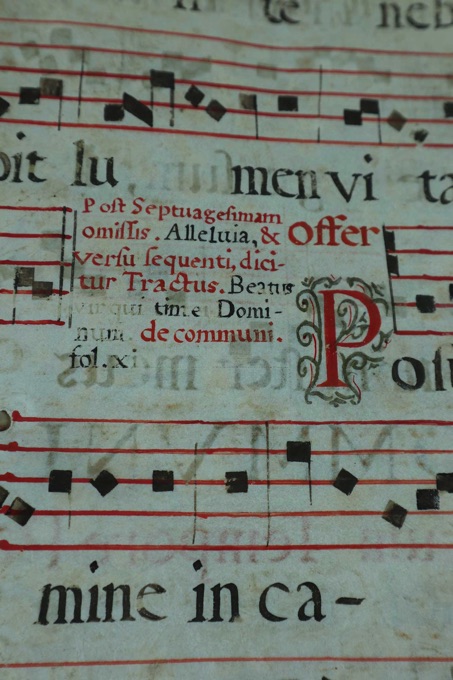 te neb
bit lu men vi ta
Post Septuagesimam
omissis. Alleluia, & Offer
versu sequenti, dici-
tur Tractus. Beatus
vir qui timet Domi-
num. de communi.
fol. xi
Posu
mine in ca-